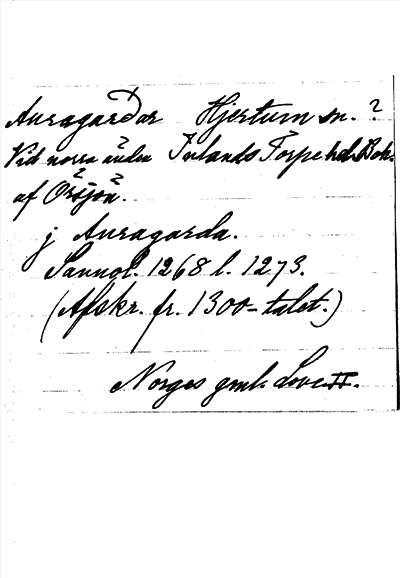 Auragarðar Hjertum sn. ?
Vid norra ändan Inlands Torpe hd. Boh.
af Öresjön.
j Auragarda.
Sannol. 1268 l. 1273.
(Afskr. fr. 1300-talet.)
Norges gml. Love II.